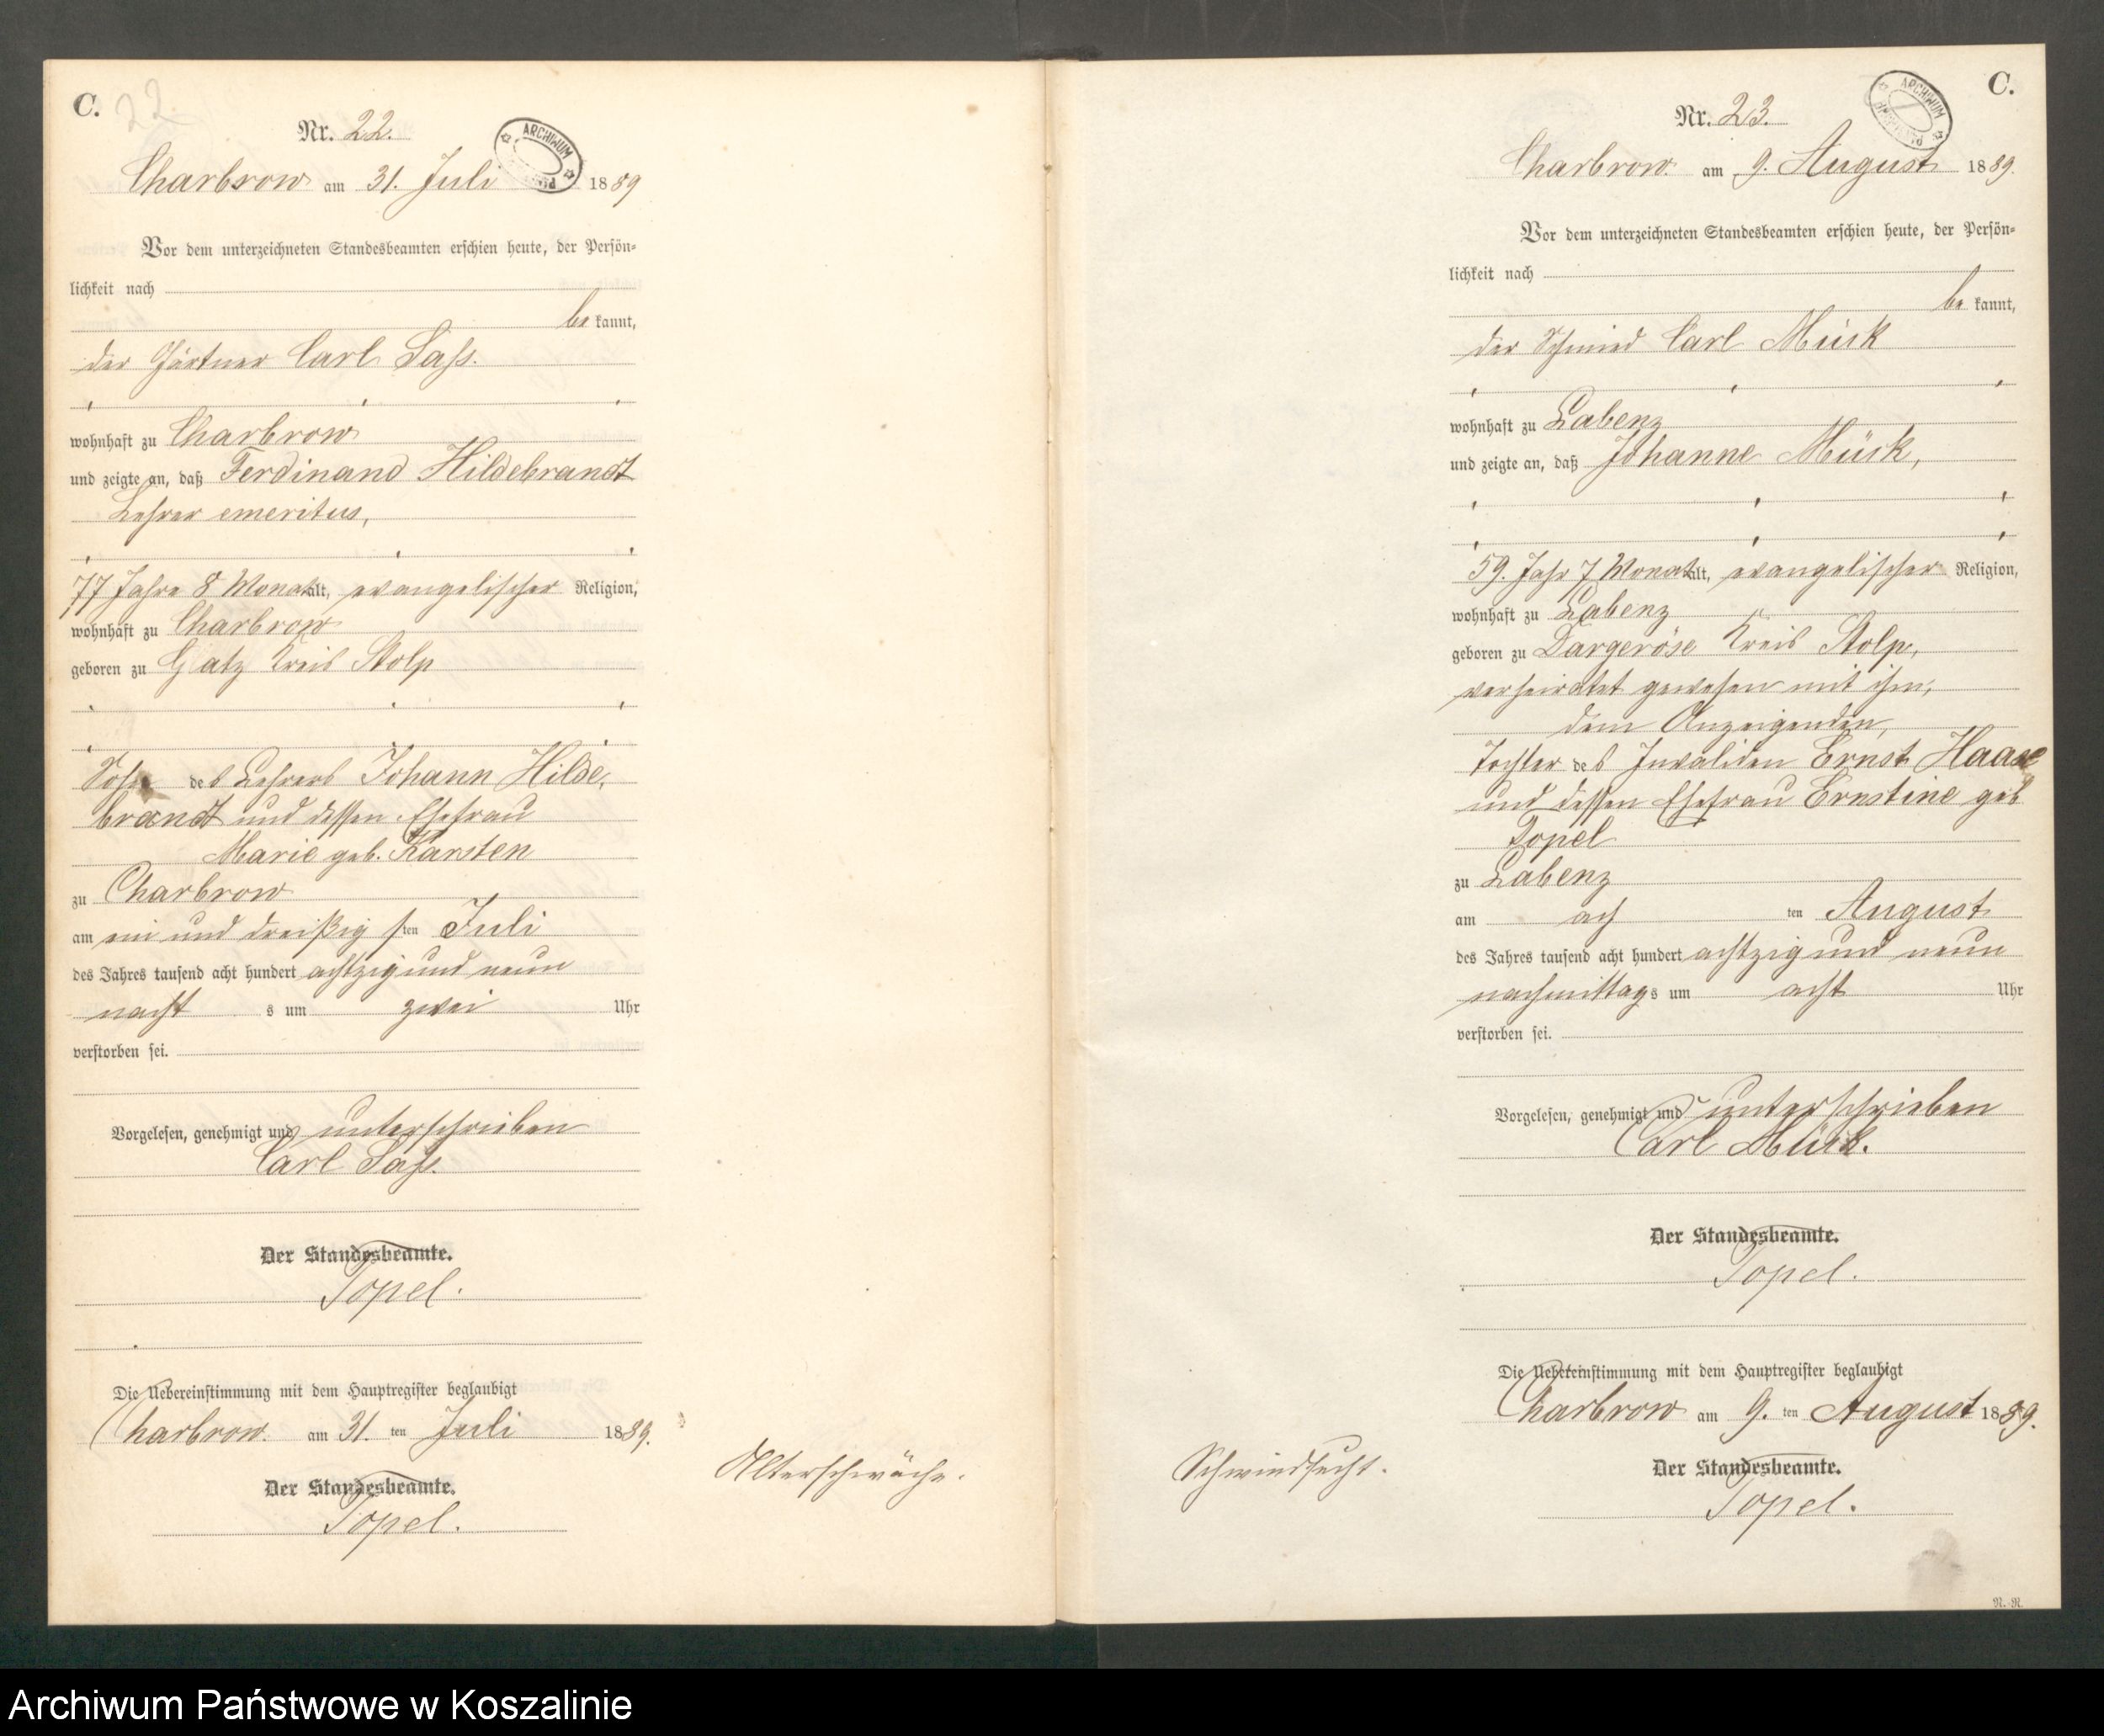 C.
22.
Nr. 22.
ARCHIWUM
Charbrow am 31. Juli 1889
Vor dem unterzeichneten Standesbeamten erschien heute, der Persön-
lichkeit nach
be kannt,
der Gärtner Carl Sass.
wohnhaft zu Charbrow
und zeigte an, daß Ferdinand Hildebrandt
Lehrer emeritus,
77 Jahre 8 Monat alt, evangelischer Religion,
wohnhaft zu Charbrow
geboren zu Gatz Kreis Stolp
Sohn des Lehrers Johann Hilde-
brandt und dessen Ehefrau
Marie geb. Karsten
zu Charbrow
am ein und dreißig sten Juli
des Jahres tausend acht hundert achtzig und neun
nacht s um zwei Uhr
verstorben sei.
Vorgelesen, genehmigt und unterschrieben
Carl Sass.
Der Standesbeamte.
Topel.
Die Uebereinstimmung mit dem Hauptregister beglaubigt
Charbrow am 31. ten Juli 1889.
Der Standesbeamte.
Topel.
Alterschwäche.
C.
Nr. 23.
ARCHIWUM
Charbrow am 9. August 1889.
Vor dem unterzeichneten Standesbeamten erschien heute, der Persön-
lichkeit nach
be kannt,
der Schmied Carl Mück
wohnhaft zu Labenz
und zeigte an, daß Johanne Mück,
59. Jahr 7 Monat alt, evangelischer Religion,
wohnhaft zu Labenz
geboren zu Dargeröse Kreis Stolp,
verheirathet gewesen mit ihm,
dem Anzeigenden,
Tochter des Invaliden Ernst Haase
und dessen Ehefrau Ernstine geb
Topel
zu Labenz
am ach ten August
des Jahres tausend acht hundert achtzig und neun
nachmittag s um acht Uhr
verstorben sei.
Vorgelesen, genehmigt und unterschrieben
Carl Mück.
Der Standesbeamte.
Topel.
Die Uebereinstimmung mit dem Hauptregister beglaubigt
Charbrow am 9. ten August 1889.
Schwindsucht.
Der Standesbeamte.
Topel.
N.-N.
Archiwum Państwowe w Koszalinie